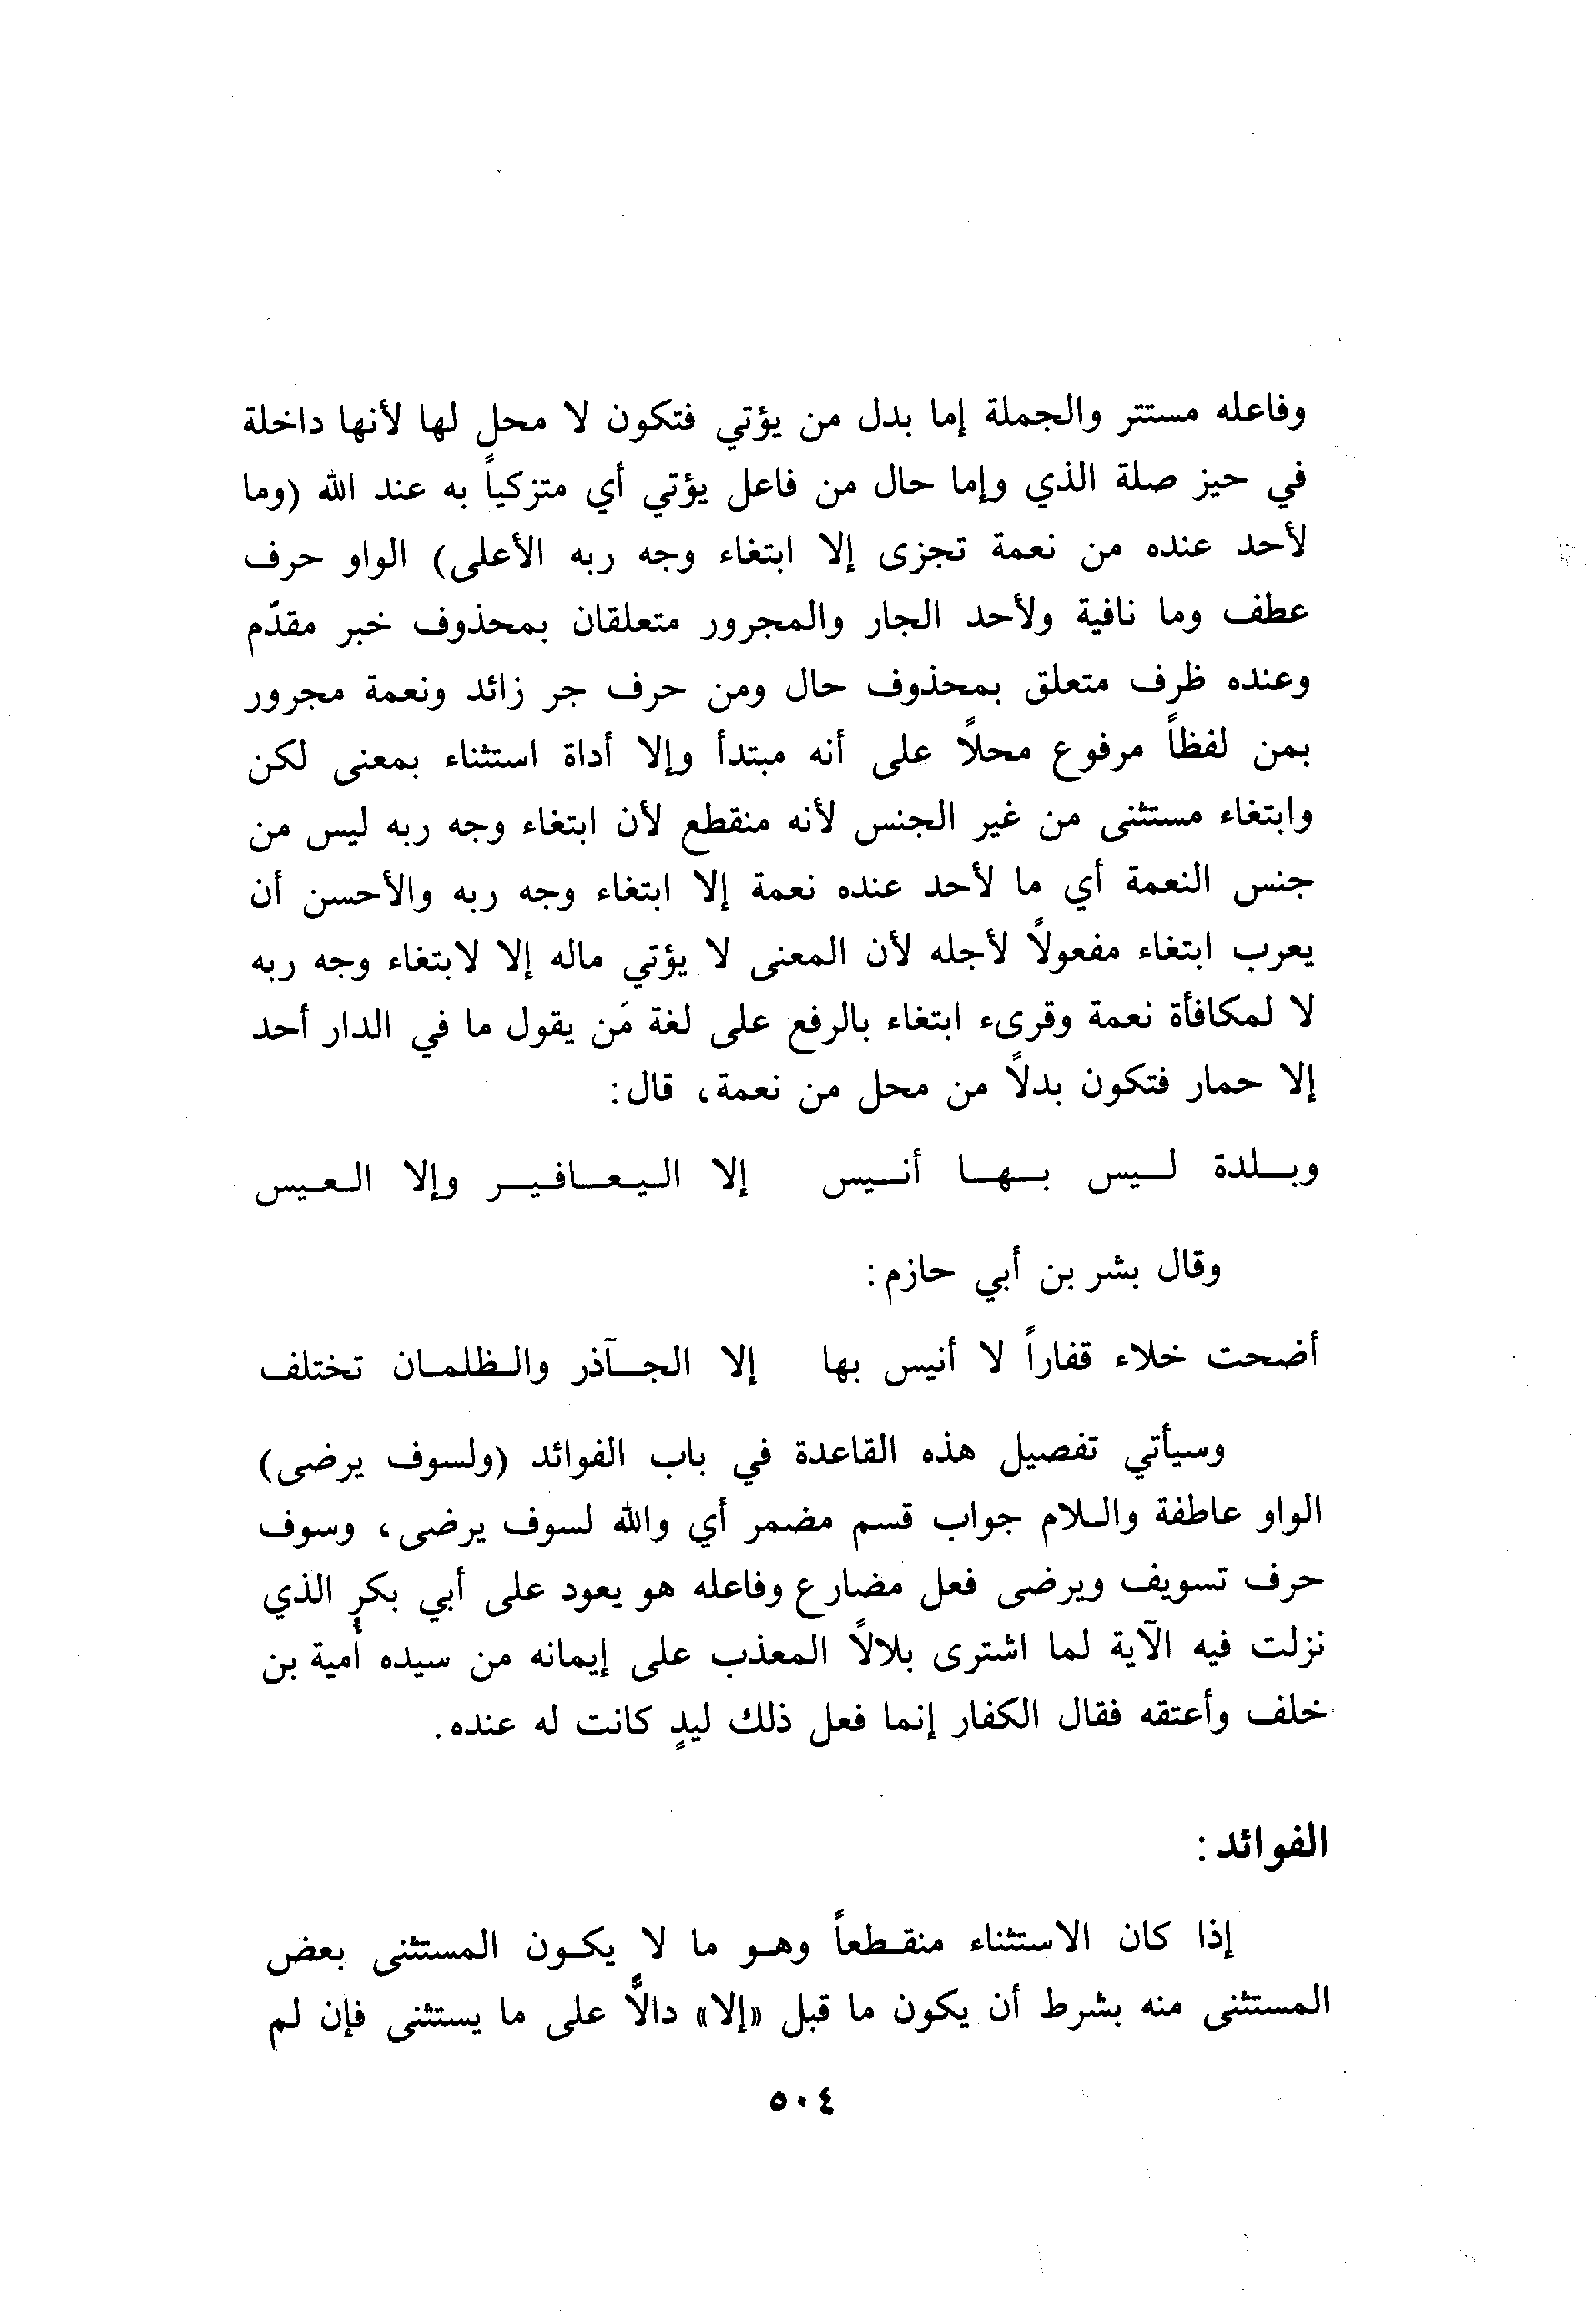 وفاعله مستتر والجملة إما بدل من يؤتي فتكون لا محل لها لأنها داخلة
في حيز صلة الذي وإما حال من فاعل يؤتي أي متزكياً به عند الله (وما
لأحد عنده من نعمة تجزى إلا ابتغاء وجه ربه الأعلى) الواو حرف
عطف وما نافية ولأحد الجار والمجرور متعلقان بمحذوف خبر مقدّم
وعنده ظرف متعلق بمحذوف حال ومن حرف جر زائد ونعمة مجرور
بمن لفظاً مرفوع محلاً على أنه مبتدأ وإلا أداة استثناء بمعنى لكن
وابتغاء مستثنى من غير الجنس لأنه منقطع لأن ابتغاء وجه ربه ليس من
جنس النعمة أي ما لأحد عنده نعمة إلا ابتغاء وجه ربه والأحسن أن
يعرب ابتغاء مفعولاً لأجله لأن المعنى لا يؤتي ماله إلا لابتغاء وجه ربه
لا لمكافأة نعمة وقرىء ابتغاء بالرفع على لغة مَن يقول ما في الدار أحد
إلا حمار فتكون بدلاً من محل من نعمة، قال:
وبـلدة لـيس بـهـا أنـيس إلا الـيـعـافـيـر وإلا الـعـيس
وقال بشر بن أبي حازم:
أضحت خلاء قفاراً لا أنيس بها إلا الجـآذر والـظلمـان تختلف
وسيأتي تفصيل هذه القاعدة في باب الفوائد (ولسوف يرضى)
الواو عاطفة والـلام جواب قسم مضمر أي والله لسوف يرضى، وسوف
حرف تسويف ويرضى فعل مضارع وفاعله هو يعود على أبي بكر الذي
نزلت فيه الآية لما اشترى بلالاً المعذب على إيمانه من سيده أُمية بن
خلف وأعتقه فقال الكفار إنما فعل ذلك ليدٍ كانت له عنده.
الفوائد:
إذا كان الاستثناء منقـطعاً وهـو ما لا يكـون المستثنى بعض
المستثنى منه بشرط أن يكون ما قبل «إلا» دالاًّ على ما يستثنى فإن لم
٥٠٤